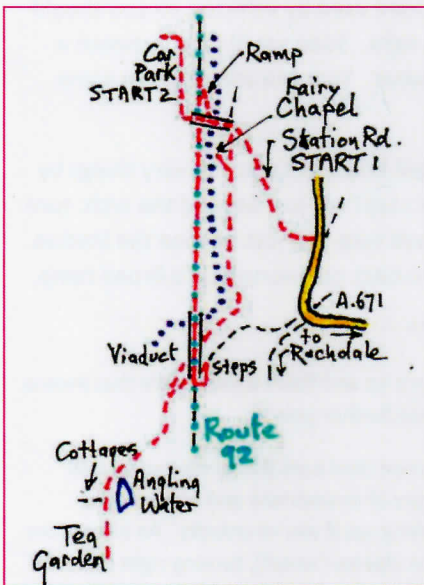 Car
Park
START 2
Ramp
Fairy
Chapel
Station Rd.
START 1
A.671
to
Rochdale
Viaduct
steps
Route
92
Cottages
Angling
Water
Tea
Garden